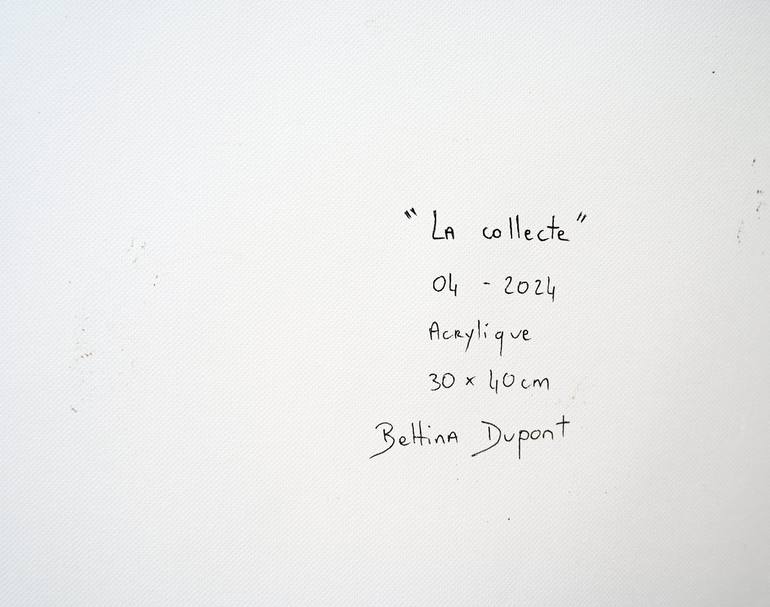 "LA collecte"
04 - 2024
Acrylique
30 x 40 cm
Bettina Dupont